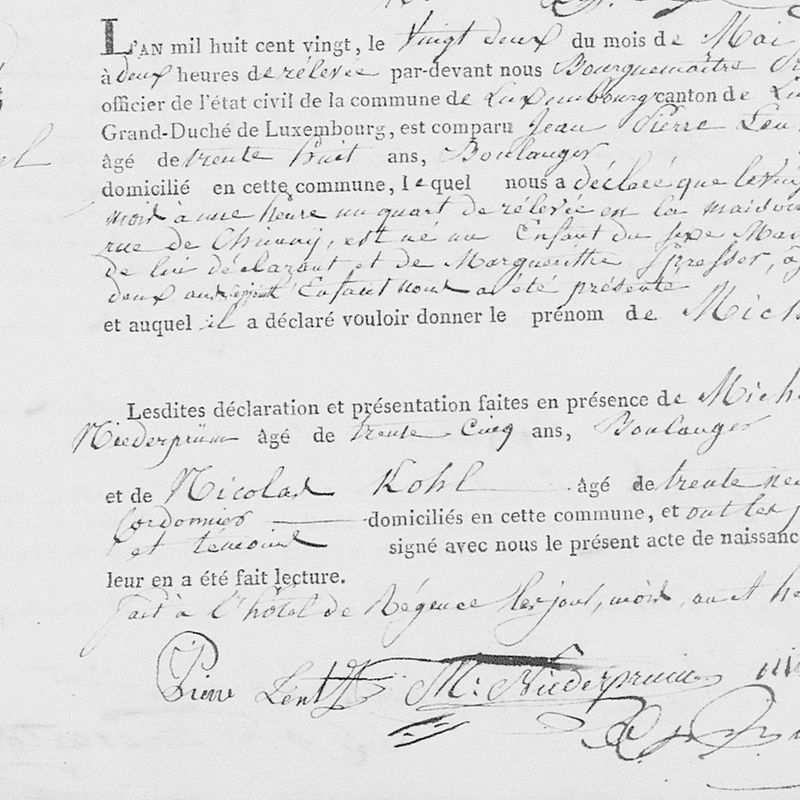 L'AN mil huit cent vingt, le vingt deux du mois de Mai
à deux heures de rélevée par-devant nous Bourguemaitre
officier de l'état civil de la commune de Luxembourg canton de
Grand-Duché de Luxembourg, est comparu Jean Pierre
âgé de trente huit ans, Boulanger
domicilié en cette commune, lequel nous a déclaré que le
mois à une heure un quart de rélevée en la maison
rue de Chimay, est né un Enfant du sexe
de lui déclarant et de Margueritte Spresser,
deux ans Enfant nous a été présenté
et auquel il a déclaré vouloir donner le prénom de
Lesdites déclaration et présentation faites en présence de
Niederprüm âgé de trente cinq ans, Boulanger
et de Nicolas Kohl âgé de trente
Cordonnier domiciliés en cette commune, et ont les
et témoins signé avec nous le présent acte de naissance
leur en a été fait lecture.
fait à l'hôtel de Régence les jour, mois, an et
Pierre Lentz M: Niederprüm